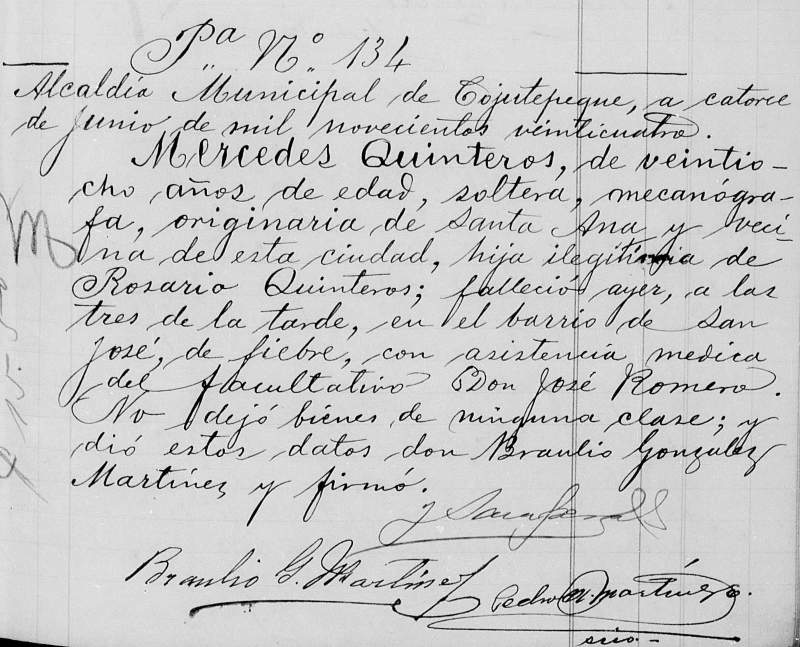 Pa Nº 134
Alcaldía Municipal de Cojutepeque, a catorce
de junio de mil novecientos veinticuatro.
Mercedes Quinteros, de veintio-
cho años de edad, soltera, mecanógra-
fa, originaria de Santa Ana y veci-
na de esta ciudad, hija ilegítima de
Rosario Quinteros; falleció ayer, a las
tres de la tarde, en el barrio de San
José, de fiebre, con asistencia medica
del facultativo Don José Romero.
No dejó bienes de ninguna clase; y
dió estos datos don Braulio González
Martínez y firmó.
Braulio G. Martínez
Pedro A. Martínez
srio-